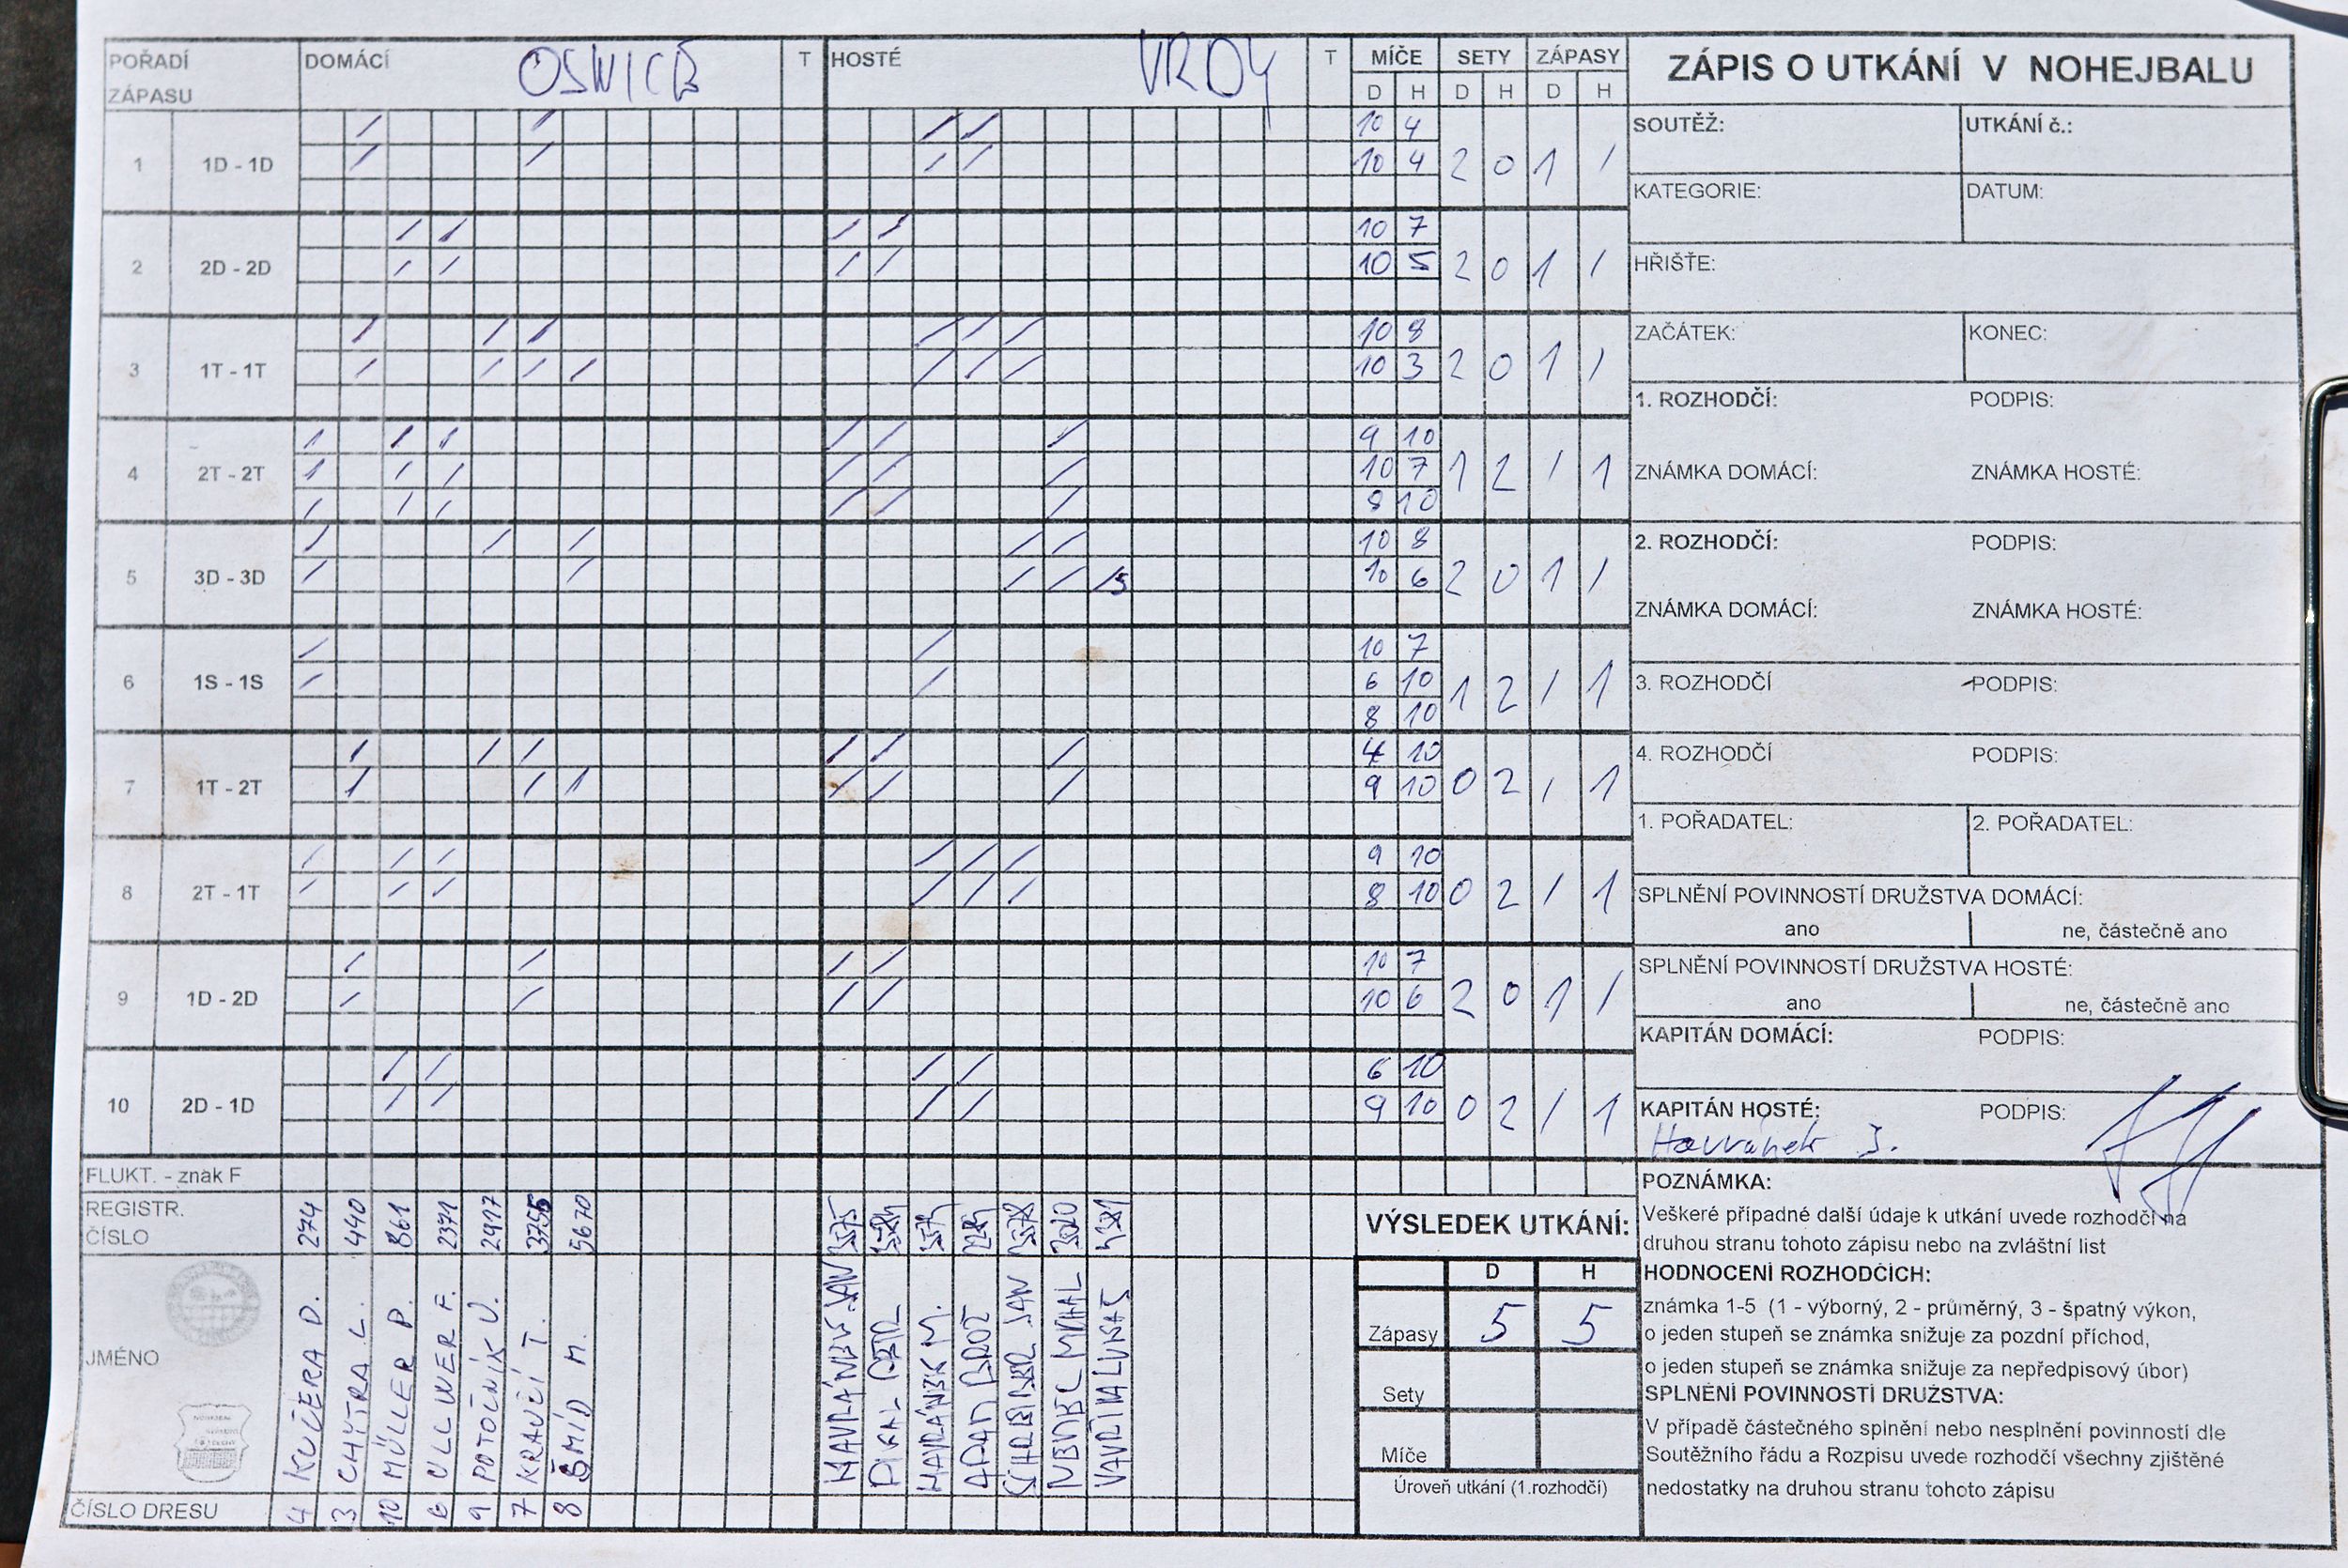 POŘADÍ ZÁPASU DOMÁCÍ OSNICE T HOSTÉ VRDY T MÍČE SETY ZÁPASY
D H D H D H
1 1D - 1D 10 4
10 4 2 0 1 /
2 2D - 2D 10 7
10 5 2 0 1 /
3 1T - 1T 10 8
10 3 2 0 1 /
4 2T - 2T 9 10
10 7 1 2 / 1
8 10
5 3D - 3D 10 8
10 6 2 0 1 /
/5
6 1S - 1S 10 7
6 10 1 2 / 1
8 10
7 1T - 2T 4 10
9 10 0 2 / 1
8 2T - 1T 9 10
8 10 0 2 / 1
9 1D - 2D 10 7
10 6 2 0 1 /
10 2D - 1D 6 10
9 10 0 2 / 1
FLUKT. - znak F
REGISTR. ČÍSLO 274 440 861 2371 2917 3755 5670
JMÉNO
KUČERA D.
CHYTRA L.
MÜLLER P.
ULLWER F.
POTOČNÍK V.
KRAVČÍ T.
ŠMÍD M.
HAVRÁNEK JAN
PIKAL PETR
HAVRÁNEK M.
ADAM BROŽ
MICHAL
VAVŘINA LUKÁŠ
ČÍSLO DRESU 4 3 10 6 9 7 8
VÝSLEDEK UTKÁNÍ:
D H
Zápasy 5 5
Sety
Míče
Úroveň utkání (1.rozhodčí)
ZÁPIS O UTKÁNÍ V NOHEJBALU
SOUTĚŽ: UTKÁNÍ č.:
KATEGORIE: DATUM:
HŘIŠTE:
ZAČÁTEK: KONEC:
1. ROZHODČÍ: PODPIS:
ZNÁMKA DOMÁCÍ: ZNÁMKA HOSTÉ:
2. ROZHODČÍ: PODPIS:
ZNÁMKA DOMÁCÍ: ZNÁMKA HOSTÉ:
3. ROZHODČÍ PODPIS:
4. ROZHODČÍ PODPIS:
1. POŘADATEL: 2. POŘADATEL:
SPLNĚNÍ POVINNOSTÍ DRUŽSTVA DOMÁCÍ:
ano ne, částečně ano
SPLNĚNÍ POVINNOSTÍ DRUŽSTVA HOSTÉ:
ano ne, částečně ano
KAPITÁN DOMÁCÍ: PODPIS:
KAPITÁN HOSTÉ: PODPIS:
Havránek J.
POZNÁMKA:
Veškeré případné další údaje k utkání uvede rozhodčí na
druhou stranu tohoto zápisu nebo na zvláštní list
HODNOCENÍ ROZHODČÍCH:
známka 1-5 (1 - výborný, 2 - průměrný, 3 - špatný výkon,
o jeden stupeň se známka snižuje za pozdní příchod,
o jeden stupeň se známka snižuje za nepředpisový úbor)
SPLNĚNÍ POVINNOSTÍ DRUŽSTVA:
V případě částečného splnění nebo nesplnění povinností dle
Soutěžního řádu a Rozpisu uvede rozhodčí všechny zjištěné
nedostatky na druhou stranu tohoto zápisu